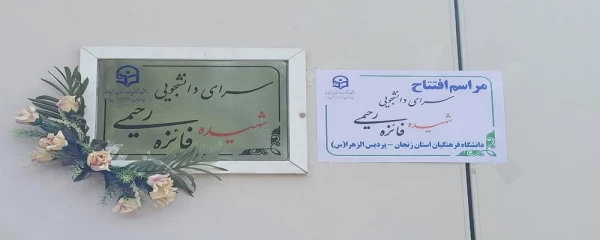 سرای دانشجویی
شهیده فائزه رحیمی
مراسم افتتاح
سرای دانشجویی
شهیده فائزه رحیمی
دانشگاه فرهنگیان استان زنجان - پردیس الزهرا(س)